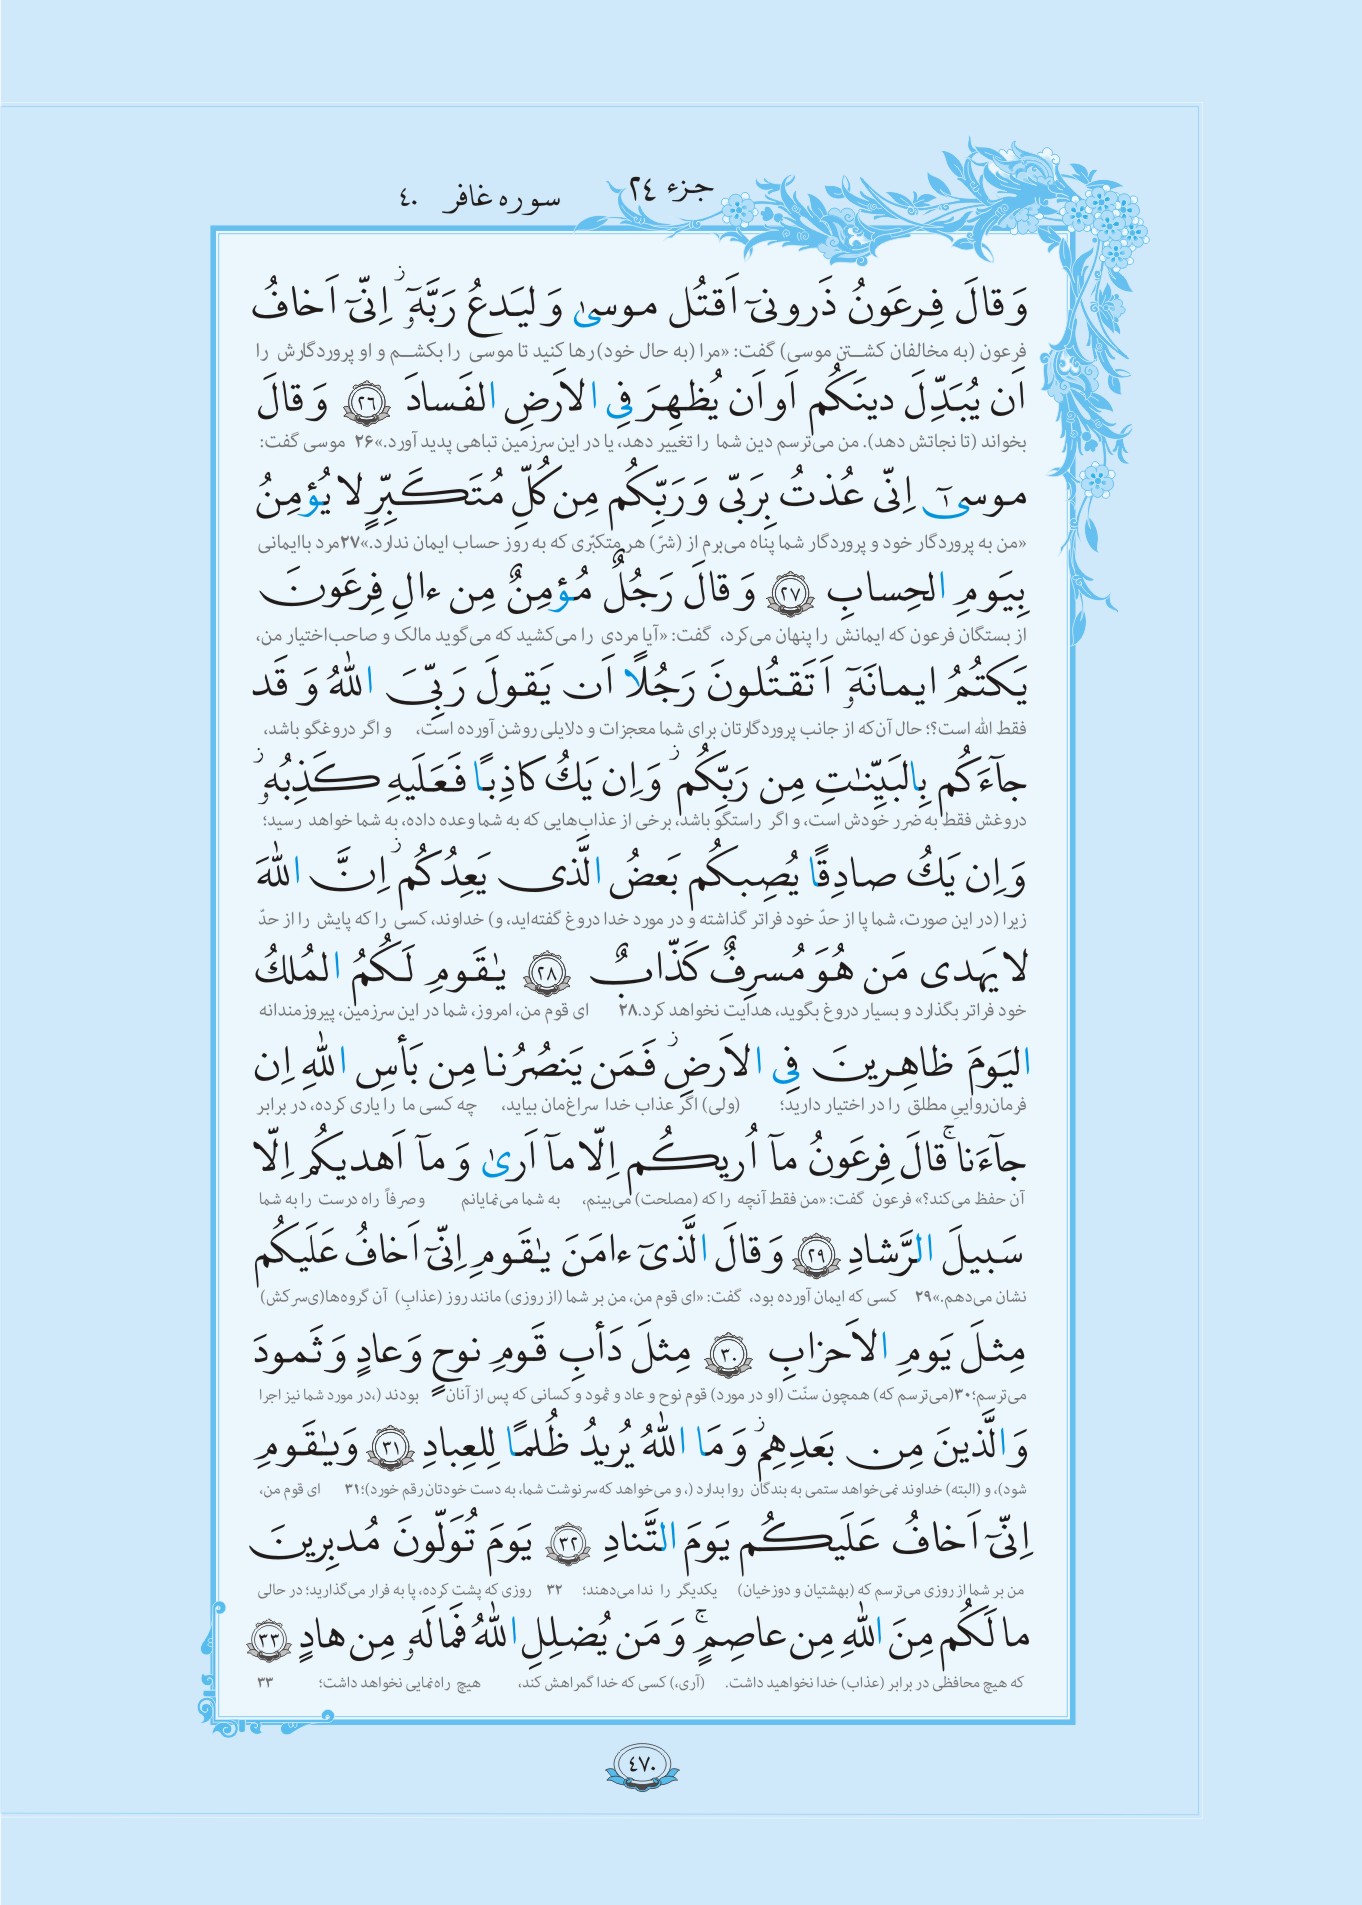 جزء ٢٤
سوره غافر ٤٠
وَ قالَ فِرعَونُ ذَرونىٓ اَقتُل موسىٰ وَ ليَدعُ رَبَّهٗٓ ۖ اِنّىٓ اَخافُ
فرعون (به مخالفان کشتن موسی) گفت: «مرا (به حال خود) رها کنید تا موسی را بکشم و او پروردگارش را
اَن يُبَدِّلَ دينَكُم اَو اَن يُظهِرَ فِى الاَرضِ الفَسادَ ٢٦ وَ قالَ
بخواند (تا نجاتش دهد). من می‌ترسم دین شما را تغییر دهد، یا در این سرزمین تباهی پدید آورد.» ۲۶ موسی گفت:
موسىٰٓ اِنّى عُذتُ بِرَبّى وَ رَبِّكُم مِن كُلِّ مُتَكَبِّرٍ لا يُؤمِنُ
«من به پروردگار خود و پروردگار شما پناه می‌برم از (شرّ) هر متکبّری که به روز حساب ایمان ندارد.» ۲۷ مرد باایمانی
بِيَومِ الحِسابِ ٢٧ وَ قالَ رَجُلٌ مُؤمِنٌ مِن ءالِ فِرعَونَ
از بستگان فرعون که ایمانش را پنهان می‌کرد، گفت: «آیا مردی را می‌کشید که می‌گوید مالک و صاحب‌اختیار من،
يَكتُمُ ايمانَهٗٓ اَتَقتُلونَ رَجُلًا اَن يَقولَ رَبِّىَ اللّٰهُ وَ قَد
فقط الله است؟؛ حال آن‌که از جانب پروردگارتان برای شما معجزات و دلایلی روشن آورده است، و اگر دروغگو باشد،
جآءَكُم بِالبَيِّنٰتِ مِن رَبِّكُم ۖ وَ اِن يَكُ كاذِبًا فَعَلَيهِ كَذِبُهٗ ۖ
دروغش فقط به ضرر خودش است، و اگر راستگو باشد، برخی از عذاب‌هایی که به شما وعده داده، به شما خواهد رسید؛
وَ اِن يَكُ صادِقًا يُصِبكُم بَعضُ الَّذى يَعِدُكُم ۖ اِنَّ اللّٰهَ
زیرا (در این صورت، شما پا از حدّ خود فراتر گذاشته و در مورد خدا دروغ گفته‌اید، و) خداوند، کسی را که پایش را از حدّ
لا يَهدى مَن هُوَ مُسرِفٌ كَذّابٌ ٢٨ يٰقَومِ لَكُمُ المُلكُ
خود فراتر بگذارد و بسیار دروغ بگوید، هدایت نخواهد کرد. ۲۸ ای قوم من، امروز، شما در این سرزمین، پیروزمندانه
اليَومَ ظاهِرينَ فِى الاَرضِ ۖ فَمَن يَنصُرُنا مِن بَأسِ اللّٰهِ اِن
فرمان‌رواییِ مطلق را در اختیار دارید؛ (ولی) اگر عذاب خدا سراغ‌مان بیاید، چه کسی ما را یاری کرده، در برابر
جآءَنا ۚ قالَ فِرعَونُ مآ اُريكُم اِلّا مآ اَرىٰ وَ مآ اَهديكُم اِلّا
آن حفظ می‌کند؟» فرعون گفت: «من فقط آنچه را که (مصلحت) می‌بینم، به شما می‌نمایانم و صرفاً راه درست را به شما
سَبيلَ الرَّشادِ ٢٩ وَ قالَ الَّذىٓ ءامَنَ يٰقَومِ اِنّىٓ اَخافُ عَلَيكُم
نشان می‌دهم.» ۲۹ کسی که ایمان آورده بود، گفت: «ای قوم من، من بر شما (از روزی) مانند روز (عذابِ) آن گروه‌ها(ی سرکش)
مِثلَ يَومِ الاَحزابِ ٣٠ مِثلَ دَأبِ قَومِ نوحٍ وَ عادٍ وَ ثَمودَ
می‌ترسم؛ ۳۰ (می‌ترسم که) همچون سنّت (او در مورد) قوم نوح و عاد و ثمود و کسانی که پس از آنان بودند (، در مورد شما نیز اجرا
وَ الَّذينَ مِن بَعدِهِم ۖ وَ مَا اللّٰهُ يُريدُ ظُلمًا لِلعِبادِ ٣١ وَ يٰقَومِ
شود)، و (البته) خداوند نمی‌خواهد ستمی به بندگان روا بدارد (، و می‌خواهد که سرنوشت شما، به دست خودتان رقم خورد)؛ ۳۱ ای قوم من،
اِنّىٓ اَخافُ عَلَيكُم يَومَ التَّنادِ ٣٢ يَومَ تُوَلّونَ مُدبِرينَ
من بر شما از روزی می‌ترسم که (بهشتیان و دوزخیان) یکدیگر را ندا می‌دهند؛ ۳۲ روزی که پشت کرده، پا به فرار می‌گذارید؛ در حالی
ما لَكُم مِنَ اللّٰهِ مِن عاصِمٍ ۚ وَ مَن يُضلِلِ اللّٰهُ فَما لَهٗ مِن هادٍ ٣٣
که هیچ محافظی در برابر (عذاب) خدا نخواهید داشت. (آری،) کسی که خدا گمراهش کند، هیچ راه‌نمایی نخواهد داشت؛ ۳۳
٤٧٠